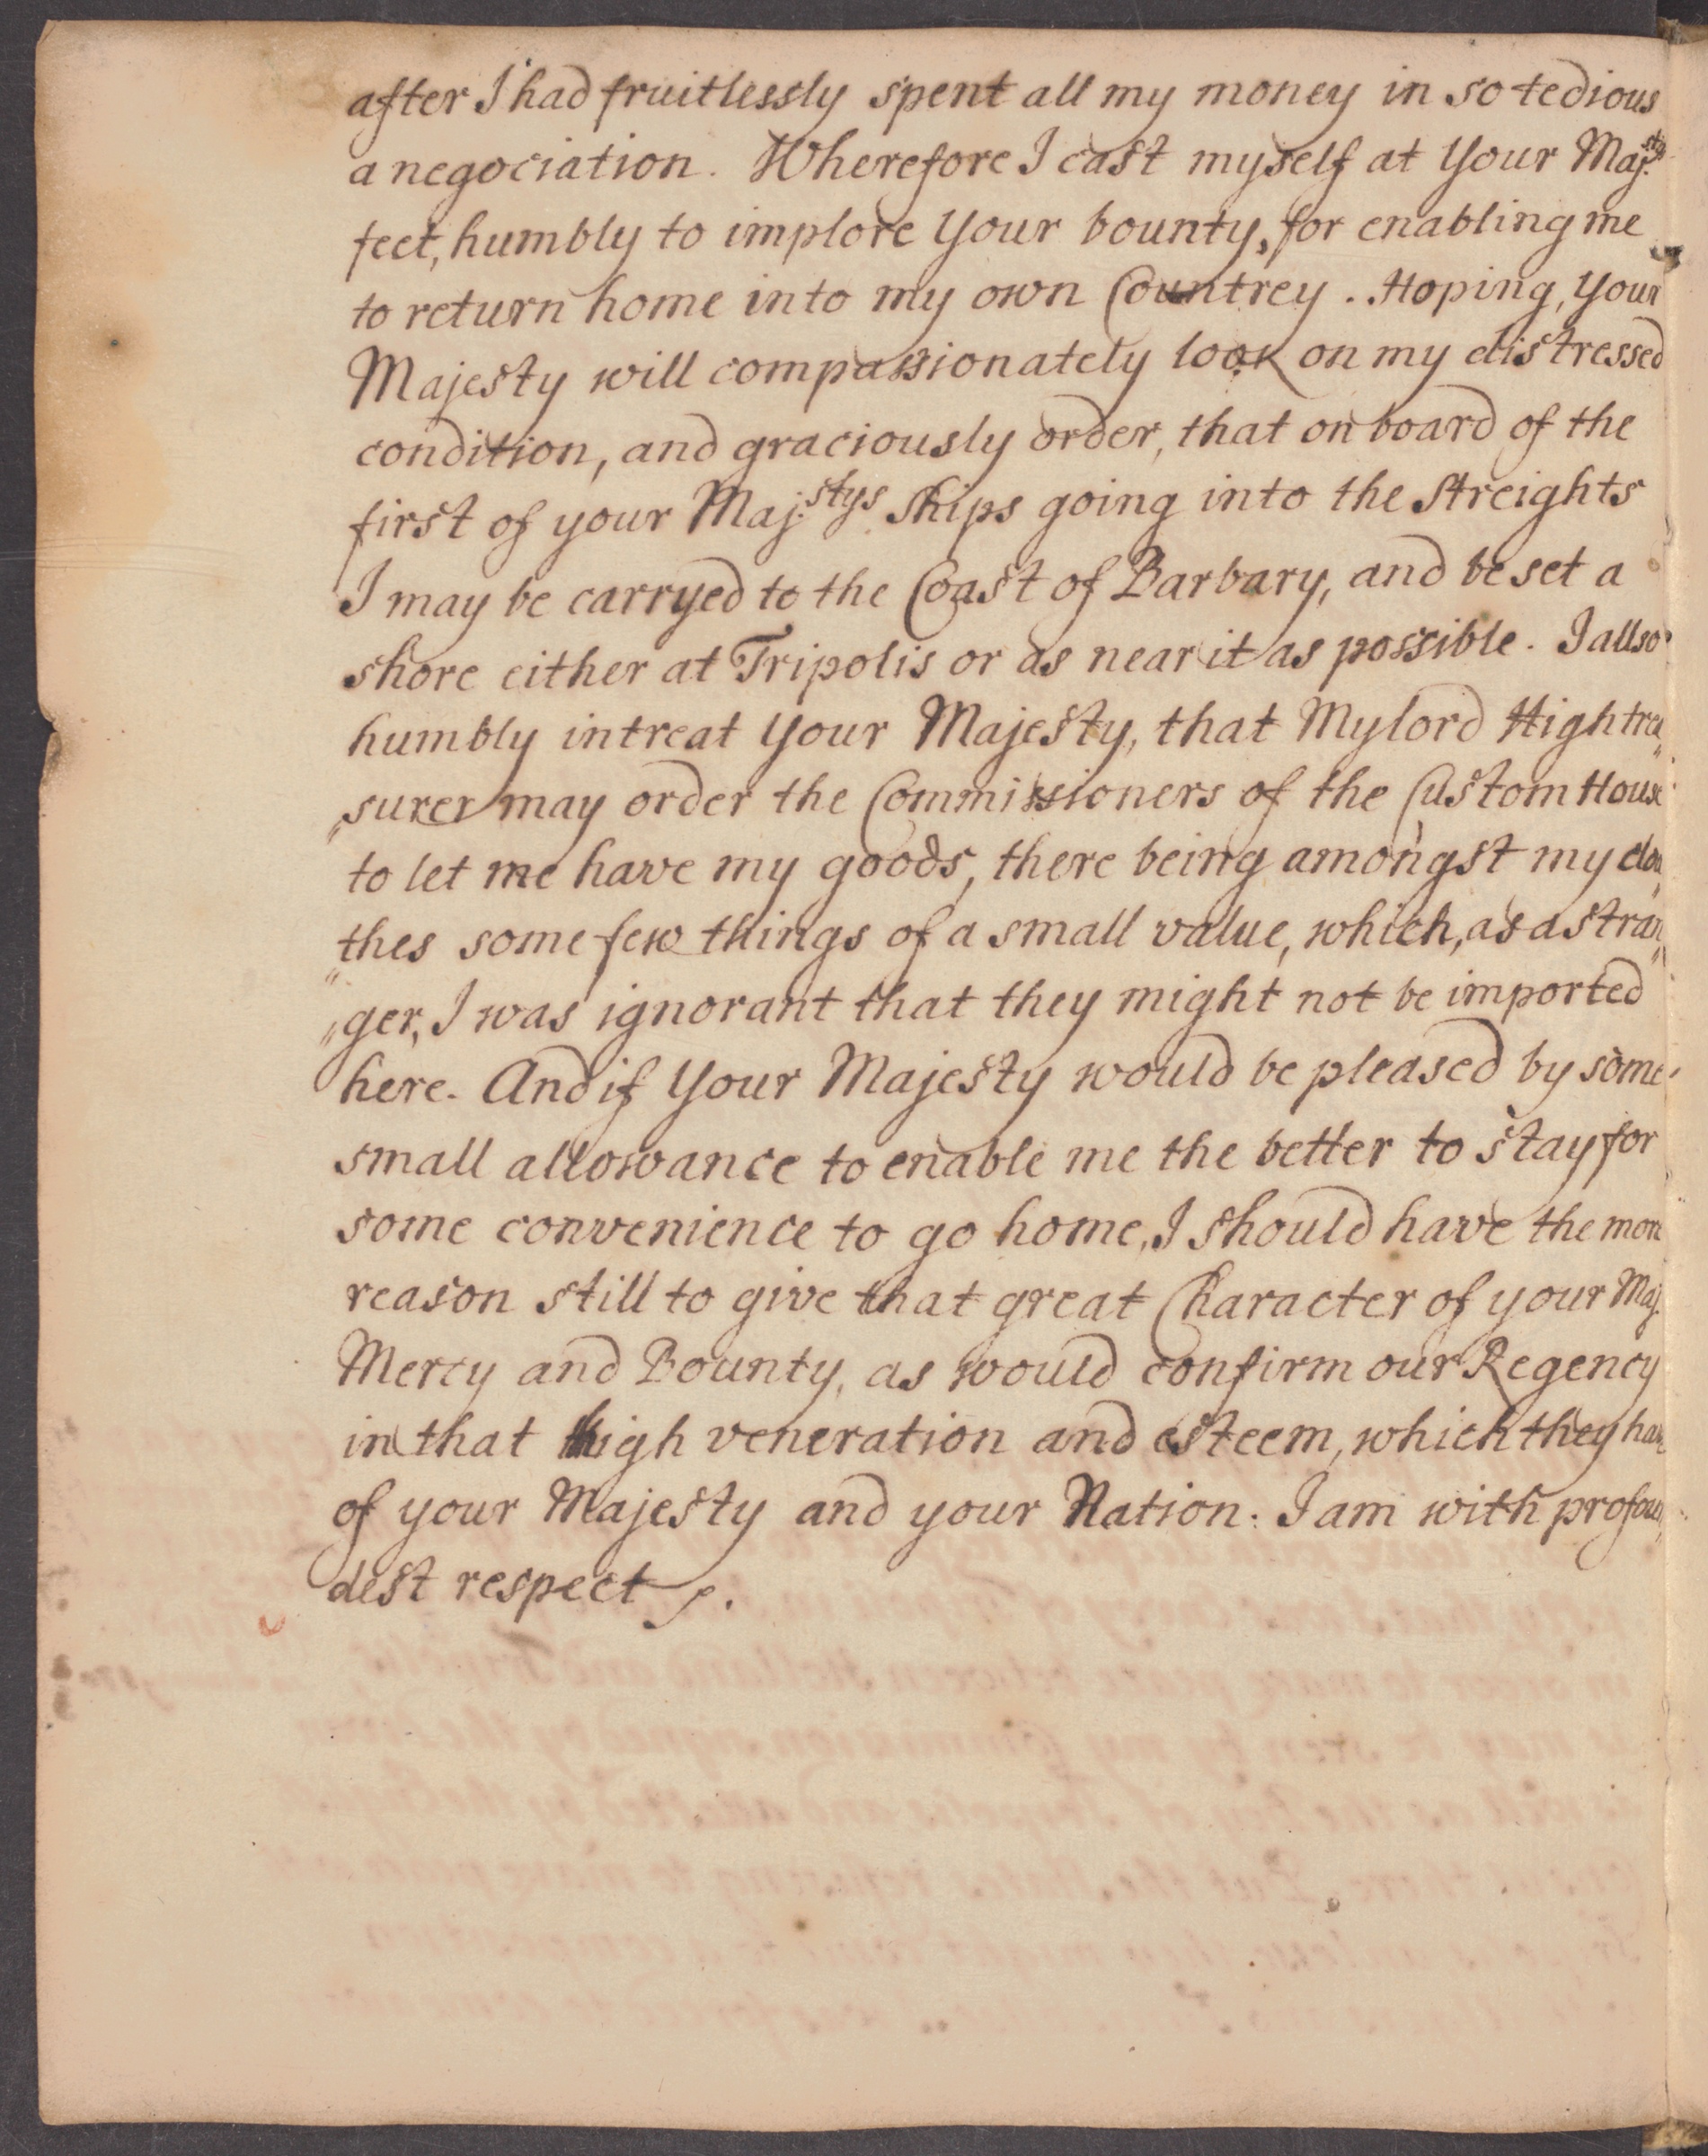 after I had fruitlessly spent all my money in so tedious
a negociation. Wherefore I cast myself at Your Maj.stys
feet, humbly to implore Your bounty, for enabling me
to return home into my own Countrey. Hoping, Your
Majesty will compassionately look on my distressed
condition, and graciously order, that on board of the
first of your Maj.stys Ships going into the Streights
I may be carryed to the Coast of Barbary, and be set a
shore either at Tripolis or as near it as possible. I allso
humbly intreat Your Majesty, that Mylord Hightrea„
„surer may order the Commissioners of the Custom House
to let me have my goods, there being amongst my clou„
„thes some few things of a small value, which, as a stran„
„ger, I was ignorant that they might not be imported
here. And if Your Majesty would be pleased by some
small allowance to enable me the better to stay for
some convenience to go home, I should have the more
reason still to give that great Character of your Maj.
Mercy and Bounty, as would confirm our Regency
in that high veneration and esteem, which they have
of your Majesty and your Nation. I am with profoun„
dest respect